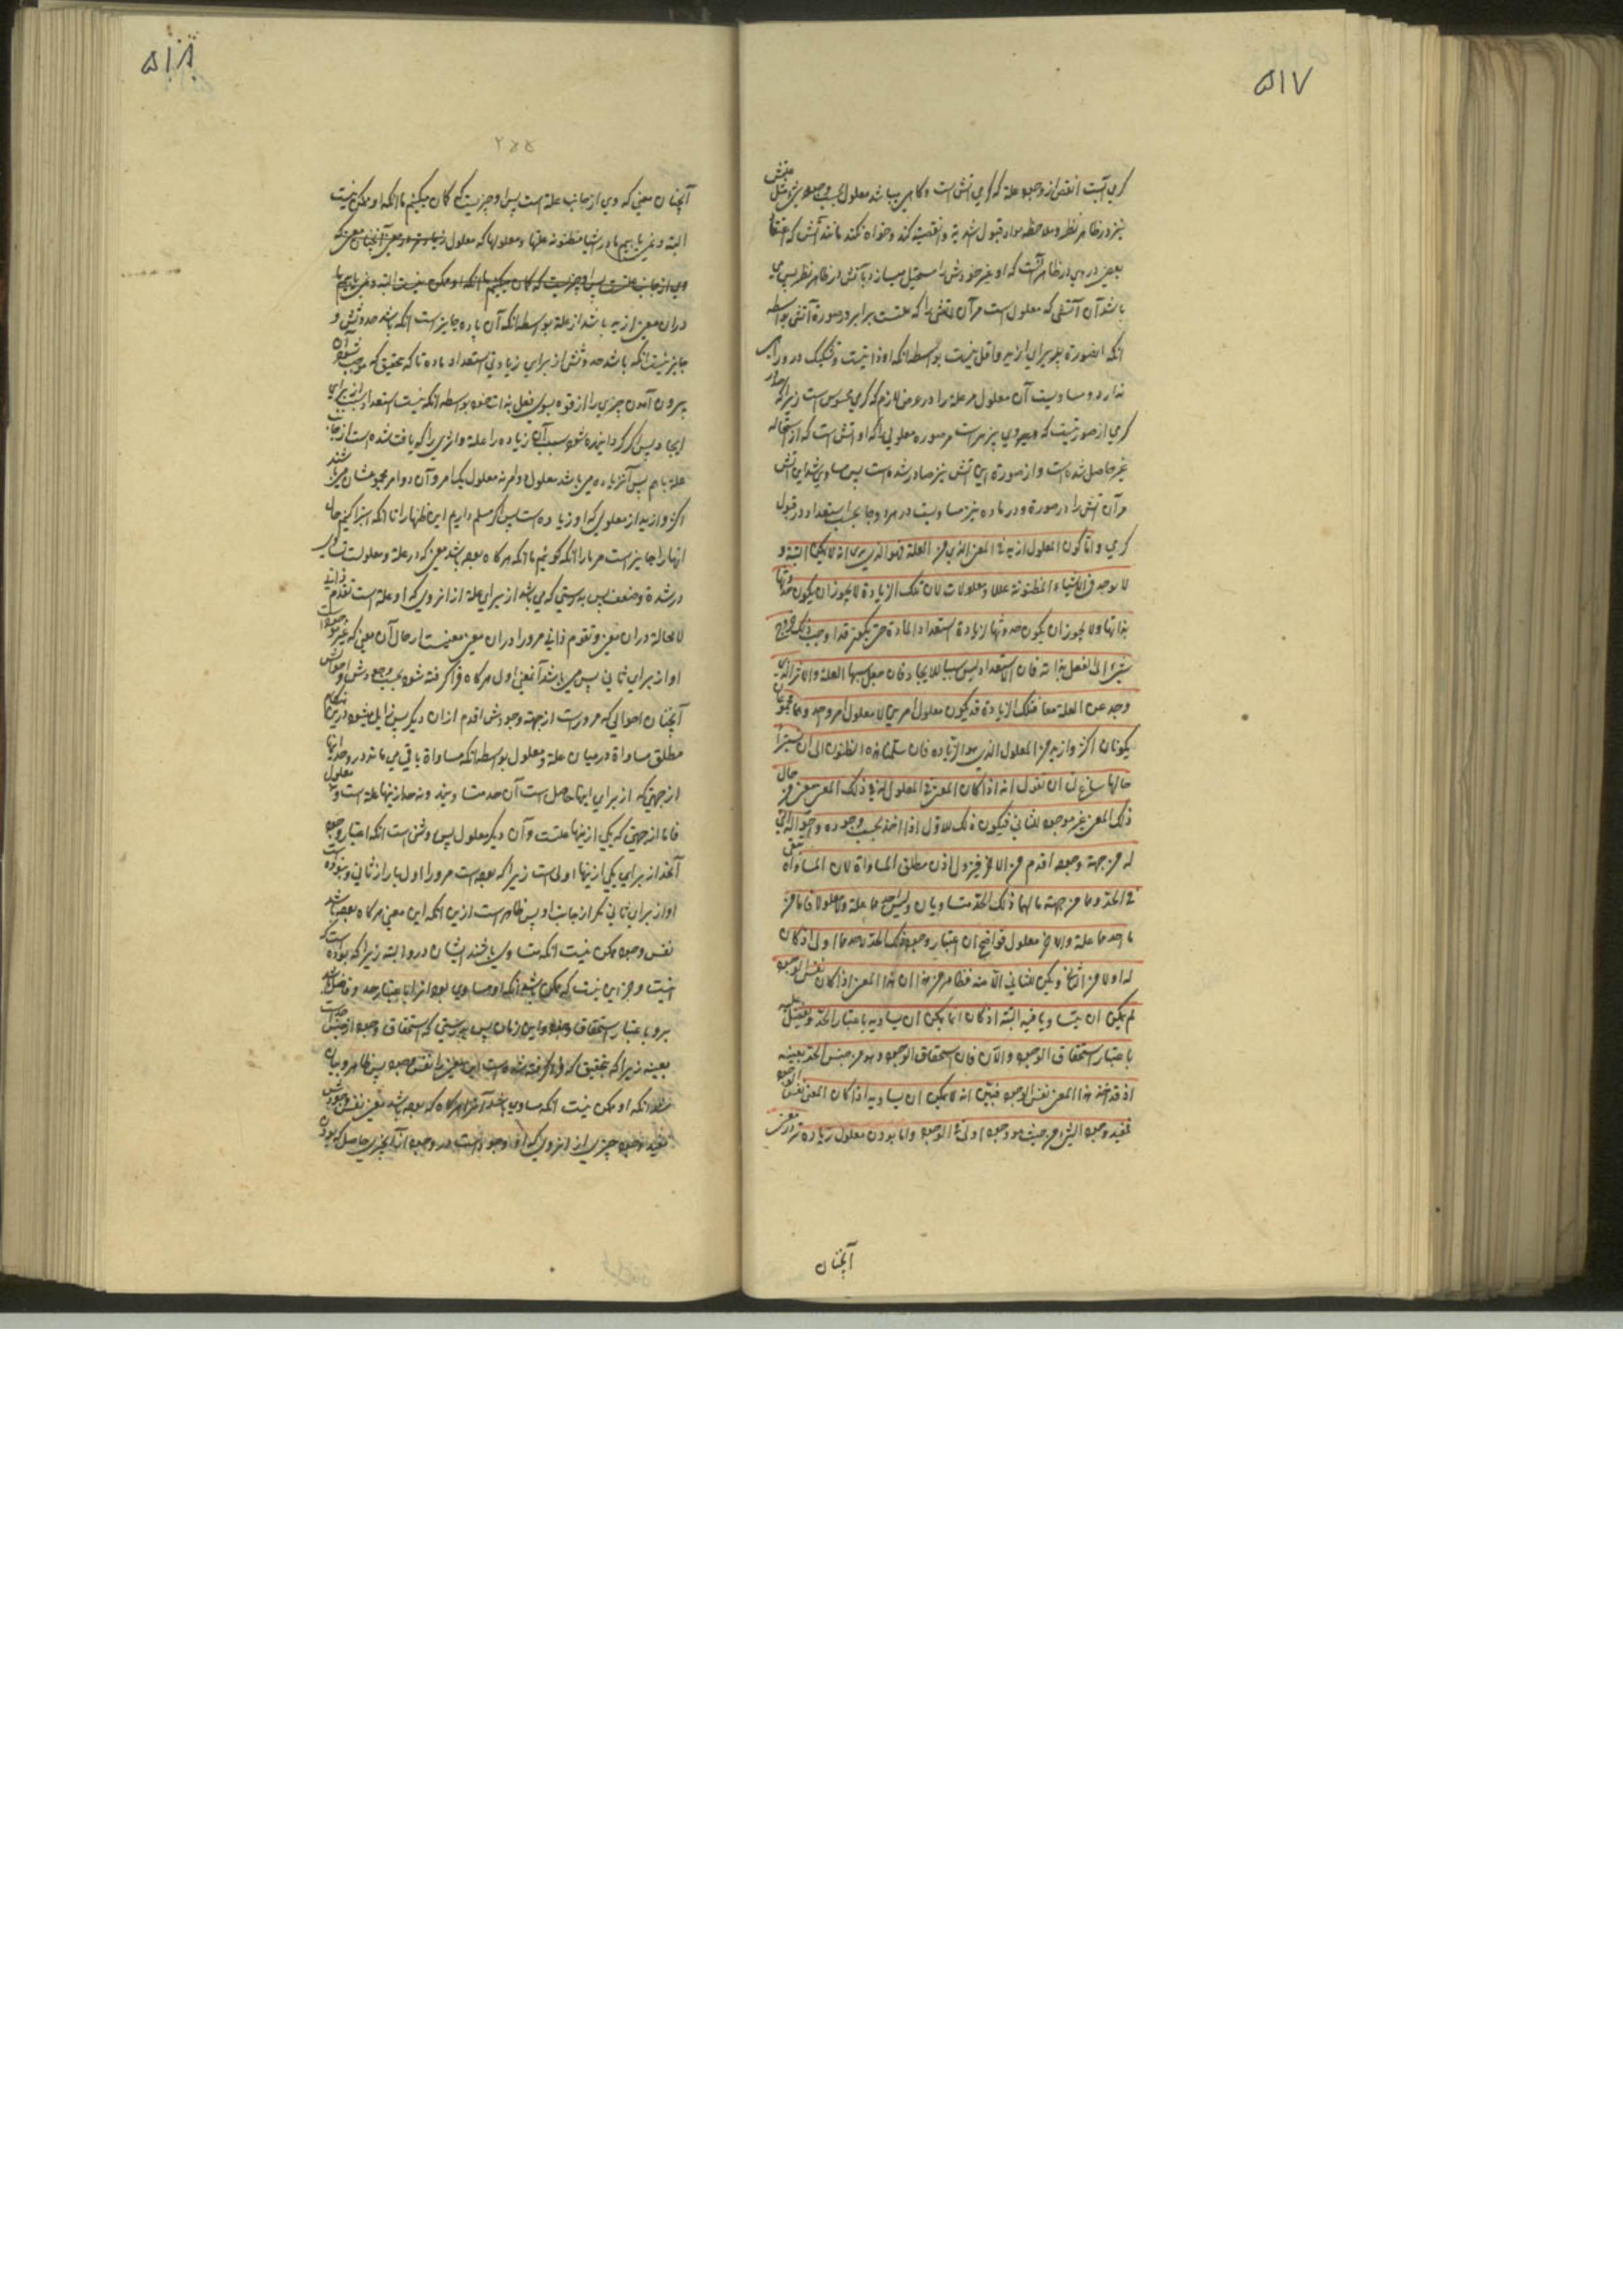 ۵۱۷
کرمی آبست انقص از وجود علة که کرمی آتش است و کاهی میباشد معلول بحسب وجود
نیز در ظاهر نظر و ملاحظه مواد قبول شدیة و انقصیة کند و خواه نکند مانند آتش که
بعضی در وی در ظاهر آنست که او غیر خودش را مستحیل میسازد بآتش در ظاهر نظر پس می
باشد آن آتشی که معلول است مر آن آتشی را که علتست برابر در صورة آتشی بواسطه
آنکه این صورة پذیرای ازید و اقل نیست بواسطه آنکه او ذاتیست و تشکیک در ذو
ندارد و مساویست آن معلول مر علة را در عرض لازم که کرمی محسوس است زیرا که
کرمی از صورتیست که
غیر حاصل شده است و از صورة این آتش نیز صادر شده است پس مساوی شد این آتش
مر آن آتش را در صورة و در ماده نیز مساویست در هر دو جا بحسب استعداد در قبول
کرمی و اما کون المعلول ازید فی المعنی الذی من العلة فهو الذی یری انه لا یمکن البتة و
لا یوجد فی الاشیاء المظنونة عللا و معلولات لان تلک الزیادة لا یجوز ان یکون حدوثها
بذاتها و لا یجوز ان یکون حدوثها لزیادة استعداد المادة حتی یکون قد اوجب ذلک خروج
شیء الی الفعل بذاته فان الاستعداد لیس سببا للایجاد فان جعل سببها العلة و الاثر الذی
وجد عن العلة معا فتلک الزیادة قد یکون معلول امرین لا معلول امر واحد و هما مجموعان
یکونان اکثر و ازید من المعلول الذی هو الزیادة فان سلمنا هذه الظنون الی ان نستبرا
حالها ساغ لنا ان نقول انه اذا کان المعنی فی المعلول
ذلک المعنی غیر موجود للثانی فیکون ذلک للاول اذا اخذ بحسب وجوده و احواله التی
له من جهة وجوده اقدم من الاخر فیزول اذن مطلق المساواة لان المساواة تبقی
فی الحد و هما من جهة ما لهما ذلک الحد متساویان و لیس احدهما علة و لا معلولا فاما من
ما احدهما علة و الاخر معلول فواضح ان اعتبار وجود ذلک الحد لاحدهما اولی اذ کان
له اولا من الثانی و لم یکن للثانی الا منه فظاهر من هذا ان هذا المعنی اذا کان نفس الوجود
لم یمکن ان یتساویا فیه البتة اذ کان انما یمکن ان یساویه باعتبار الحد و یفضل علیه
باعتبار استحقاق الوجود و الآن فان استحقاق الوجود هو من جنس الحد بعینه
اذ قد اخذ هذا المعنی نفس الوجود فبین انه لا یمکن ان یساویه اذا کان المعنی نفس الوجود
فمفید وجود الشیء من حیث هو وجود اولی بالوجود و اما بودن معلول زیاده تر در معنی
آنچنان
۵۱۸
آنچنان معنی که وی از جانب علة است پس او چیزیست که کمان میکنیم ما آنکه او ممکن نیست
البته و نمی یابیم ما در اشیاء مظنونه علتها و معلولها که معلول
در آن معنی ازید باشد از علة بواسطه آنکه آن یاده جایز نیست آنکه باشد حدوثش و
جایز نیست آنکه باشد حدوثش از برای زیادتی استعداد ماده تا که بتحقیق که موجب شود آن
بیرون آمدن چیزی را از قوه بسوی فعل بذات خود بواسطه آنکه نیست استعداد سبب از برای
ایجاد پس اگر گردانیده شود سبب آن زیاده را علة و اثری را که یافت شده است از جانب
علة با هم پس آن زیاده می باشد معلول دو امر نه معلول یک امر و آن دو امر مجموعشان می باشند
اکثر و ازید از معلولی که او زیاده است پس اگر مسلم داریم این ظنها را تا آنکه استبرا کنیم حال
آنها را جایز است مر ما را آنکه گوئیم ما آنکه هر گاه بوده باشد معنی که در علة و معلول
در شدة و ضعف پس بدرستی که می باشد از برای علة از آن روی که او علة است تقدم ذاتی
لا محالة در آن معنی و تقدم ذاتی مر او را در آن معنی معنیست از حال آن معنی که غیر موجود است
او از برای ثانی پس می باشد آنمعنی اول هر گاه فراگرفته شود بحسب وجودش و احوالش
آنچنان احوالی که مر او راست از جهة وجودش اقدم از آن دیگر پس زایل میشود درین هنگام
مطلق مساواة در میان علة و معلول بواسطه آنکه مساواة باقی می ماند در حد و اینها
از جهتی که از برای اینها حاصل است آن حد متساویند و نه احد اینها علة است و نه معلول
فاما از جهتی که یکی از اینها علتست و آن دیگر معلول پس روشن است آنکه اعتبار وجود
آنحد از برای یکی از اینها اولی است زیرا که بوده است مر او را اول بار از ثانی و نبوده است
او از برای ثانی مگر از جانب او پس ظاهر است ازین آنکه این معنی هر گاه بوده باشد
نفس وجود ممکن نیست آنکه متساوی باشند ایشان در او البته زیرا که بوده است که
اینست و جز این نیست که ممکن باشد آنکه او مساوی بود او را باعتبار حد و فاضل باشد
برو باعتبار استحقاق وجود و این زمان پس بدرستی که استحقاق وجود از جنس حد است
بعینه زیرا که بتحقیق که فراگرفته شده است این معنی نفس وجود پس ظاهر و بیان
شد آنکه او ممکن نیست آنکه مساوی باشد او را هر گاه که بوده باشد معنی نفس وجودش
مفید وجود چیزی از آن روی که او وجود است در وجود